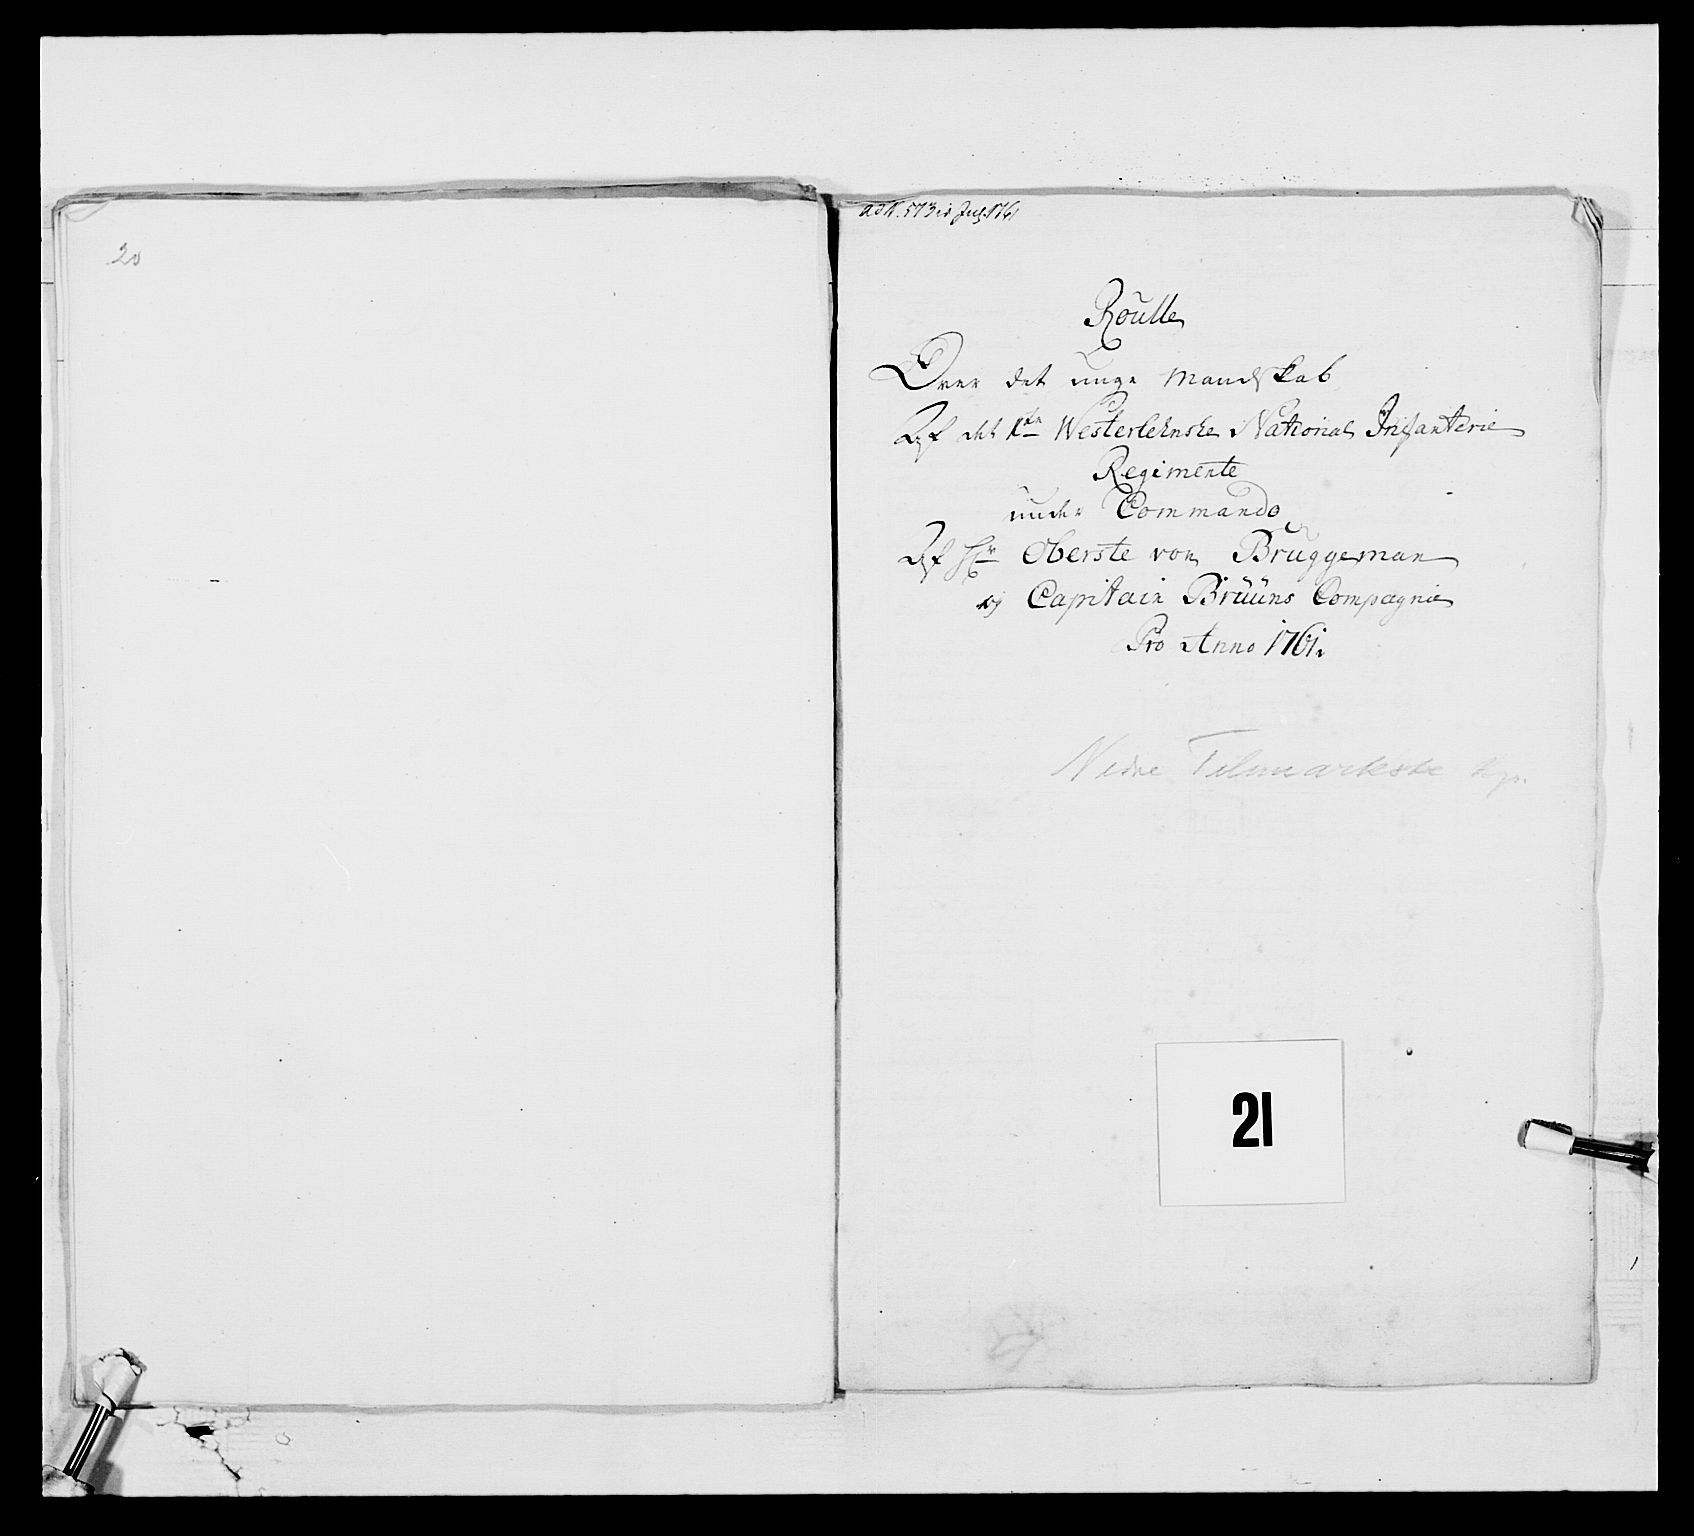 20
ad N. 573 in Jul. 1761
Roulle
Over det unge Mandskab
Af det 1ste Westerlehnske National Infanterie
Regimente
under Commando
Af Hr Oberste von Bruggeman
og Capitain Brüüns Compagnie
Pro Anno 1761.
Nedre Telemarkske Kp.
21